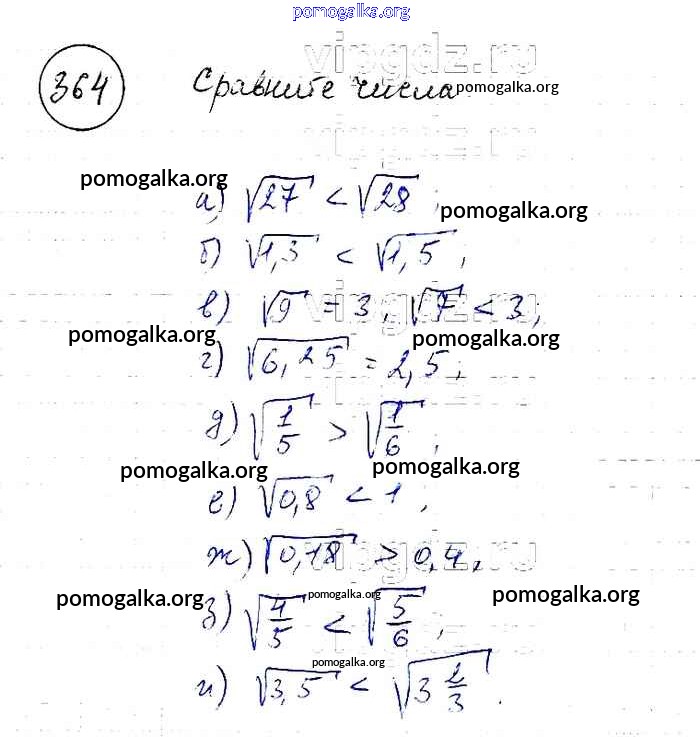 pomogalka.org
vipgdz.ru
364 Сравните числа
pomogalka.org
vipgdz.ru
pomogalka.org
а) √27 < √28;
pomogalka.org
б) √1,3 < √1,5;
vipgdz.ru
в) √9 = 3, √7 < 3;
pomogalka.org pomogalka.org
г) √6,25 = 2,5;
д) √1/5 > √1/6;
pomogalka.org pomogalka.org
е) √0,8 < 1,
vipgdz.ru
ж) √0,18 > 0,4,
pomogalka.org pomogalka.org pomogalka.org
з) √4/5 < √5/6,
pomogalka.org
и) √3,5 < √3 2/3.